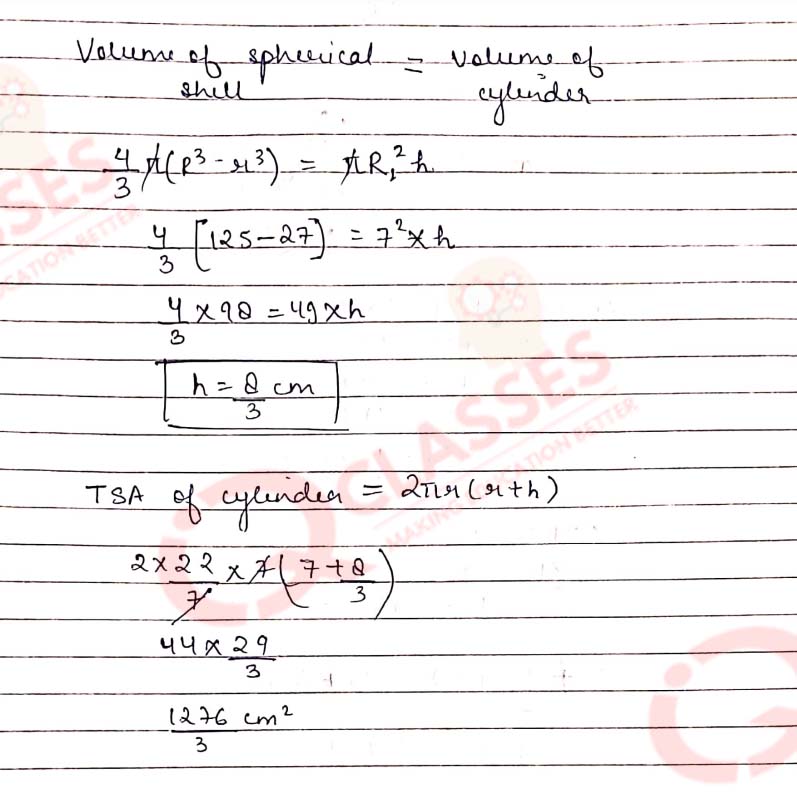 Volume of spherical = volume of
shell cylinder
4/3 π(R³ - r³) = πR₁² h
4/3 [125 - 27] = 7² × h
4/3 × 98 = 49 × h
h = 8/3 cm
TSA of cylinder = 2πr(r+h)
2 × 22/7 × 7(7 + 8/3)
44 × 29/3
1276/3 cm²
CLASSES
MAKING EDUCATION BETTER